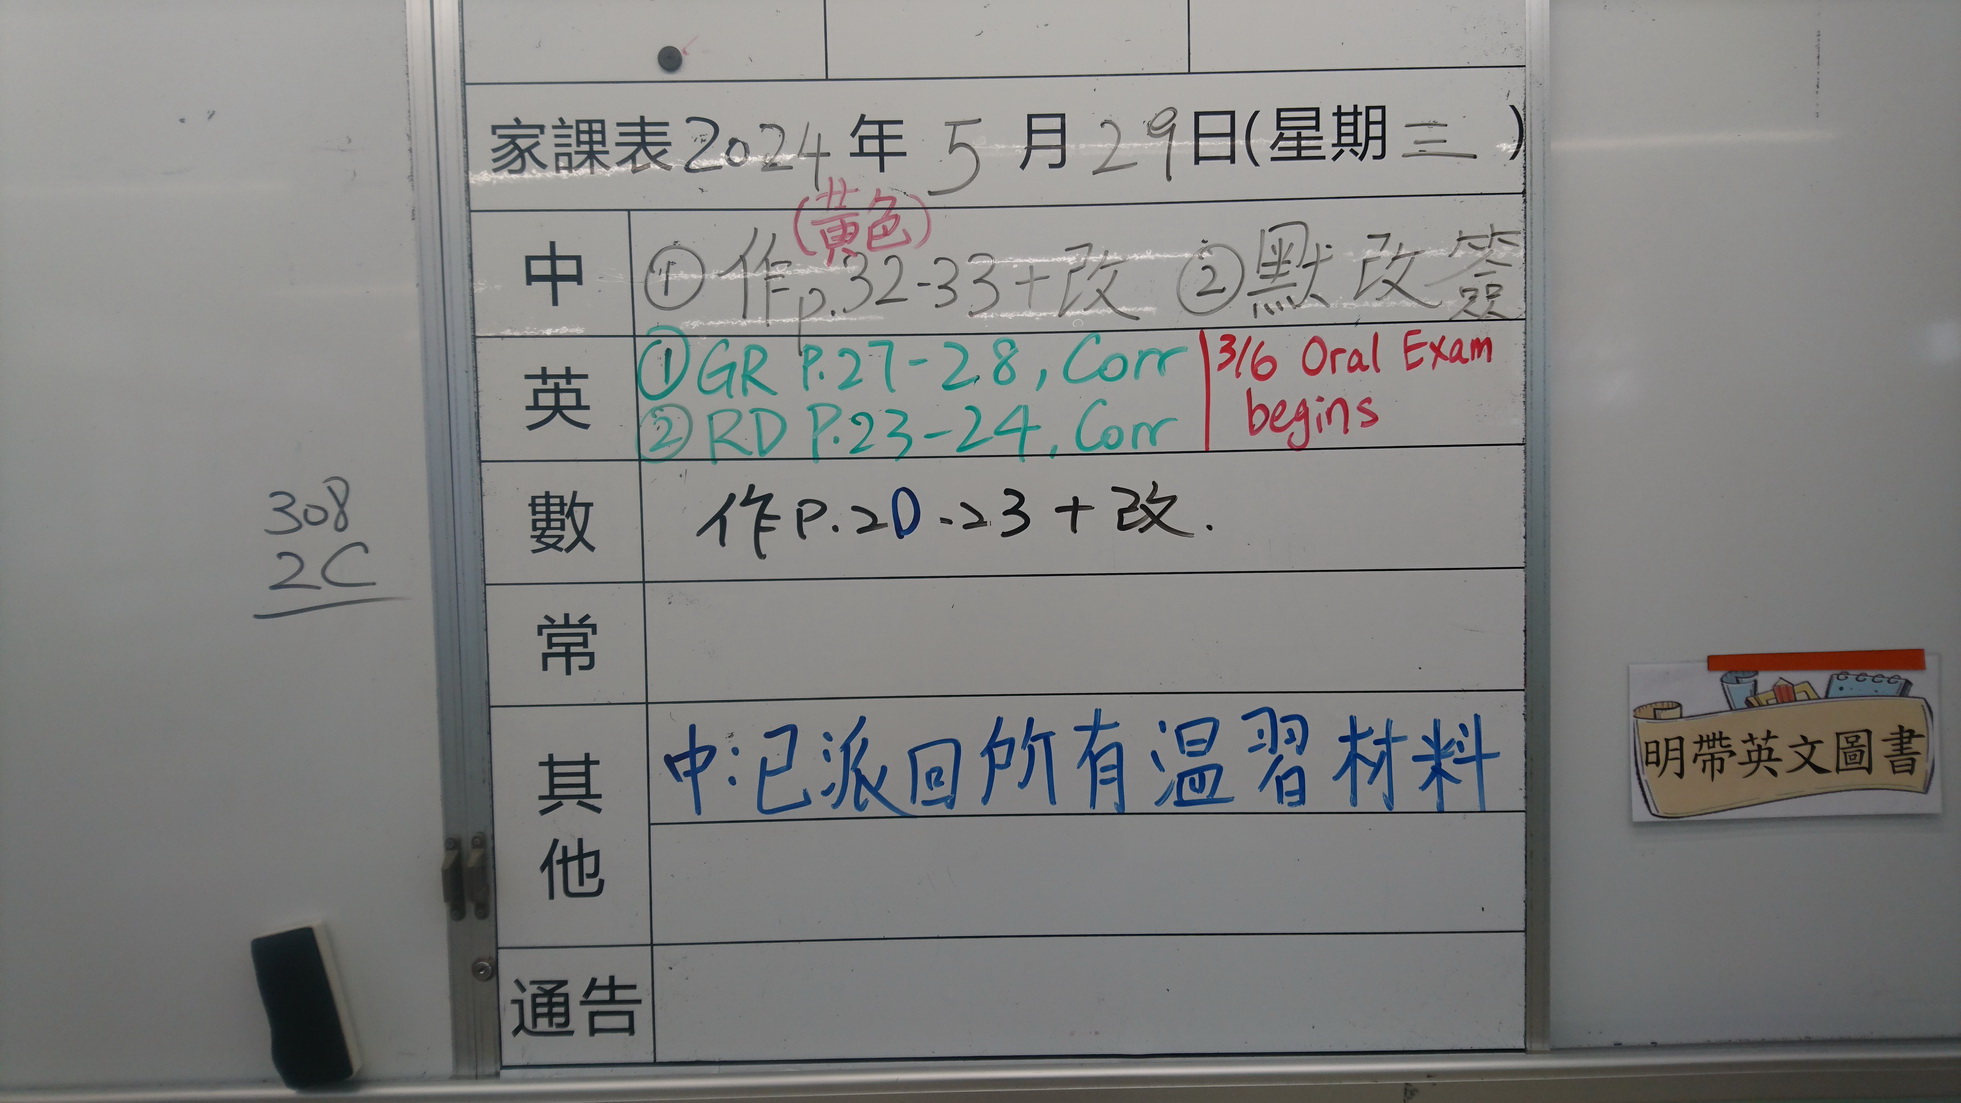 家課表2024年5月29日(星期三)
中
(黃色)
①作p.32-33+改 ②默改簽
英
①GR P.27-28, Corr
②RD P.23-24, Corr
3/6 Oral Exam
begins
數
作P.20-23+改.
常
其他
中:已派回所有温習材料
通告
308
2C
明帶英文圖書